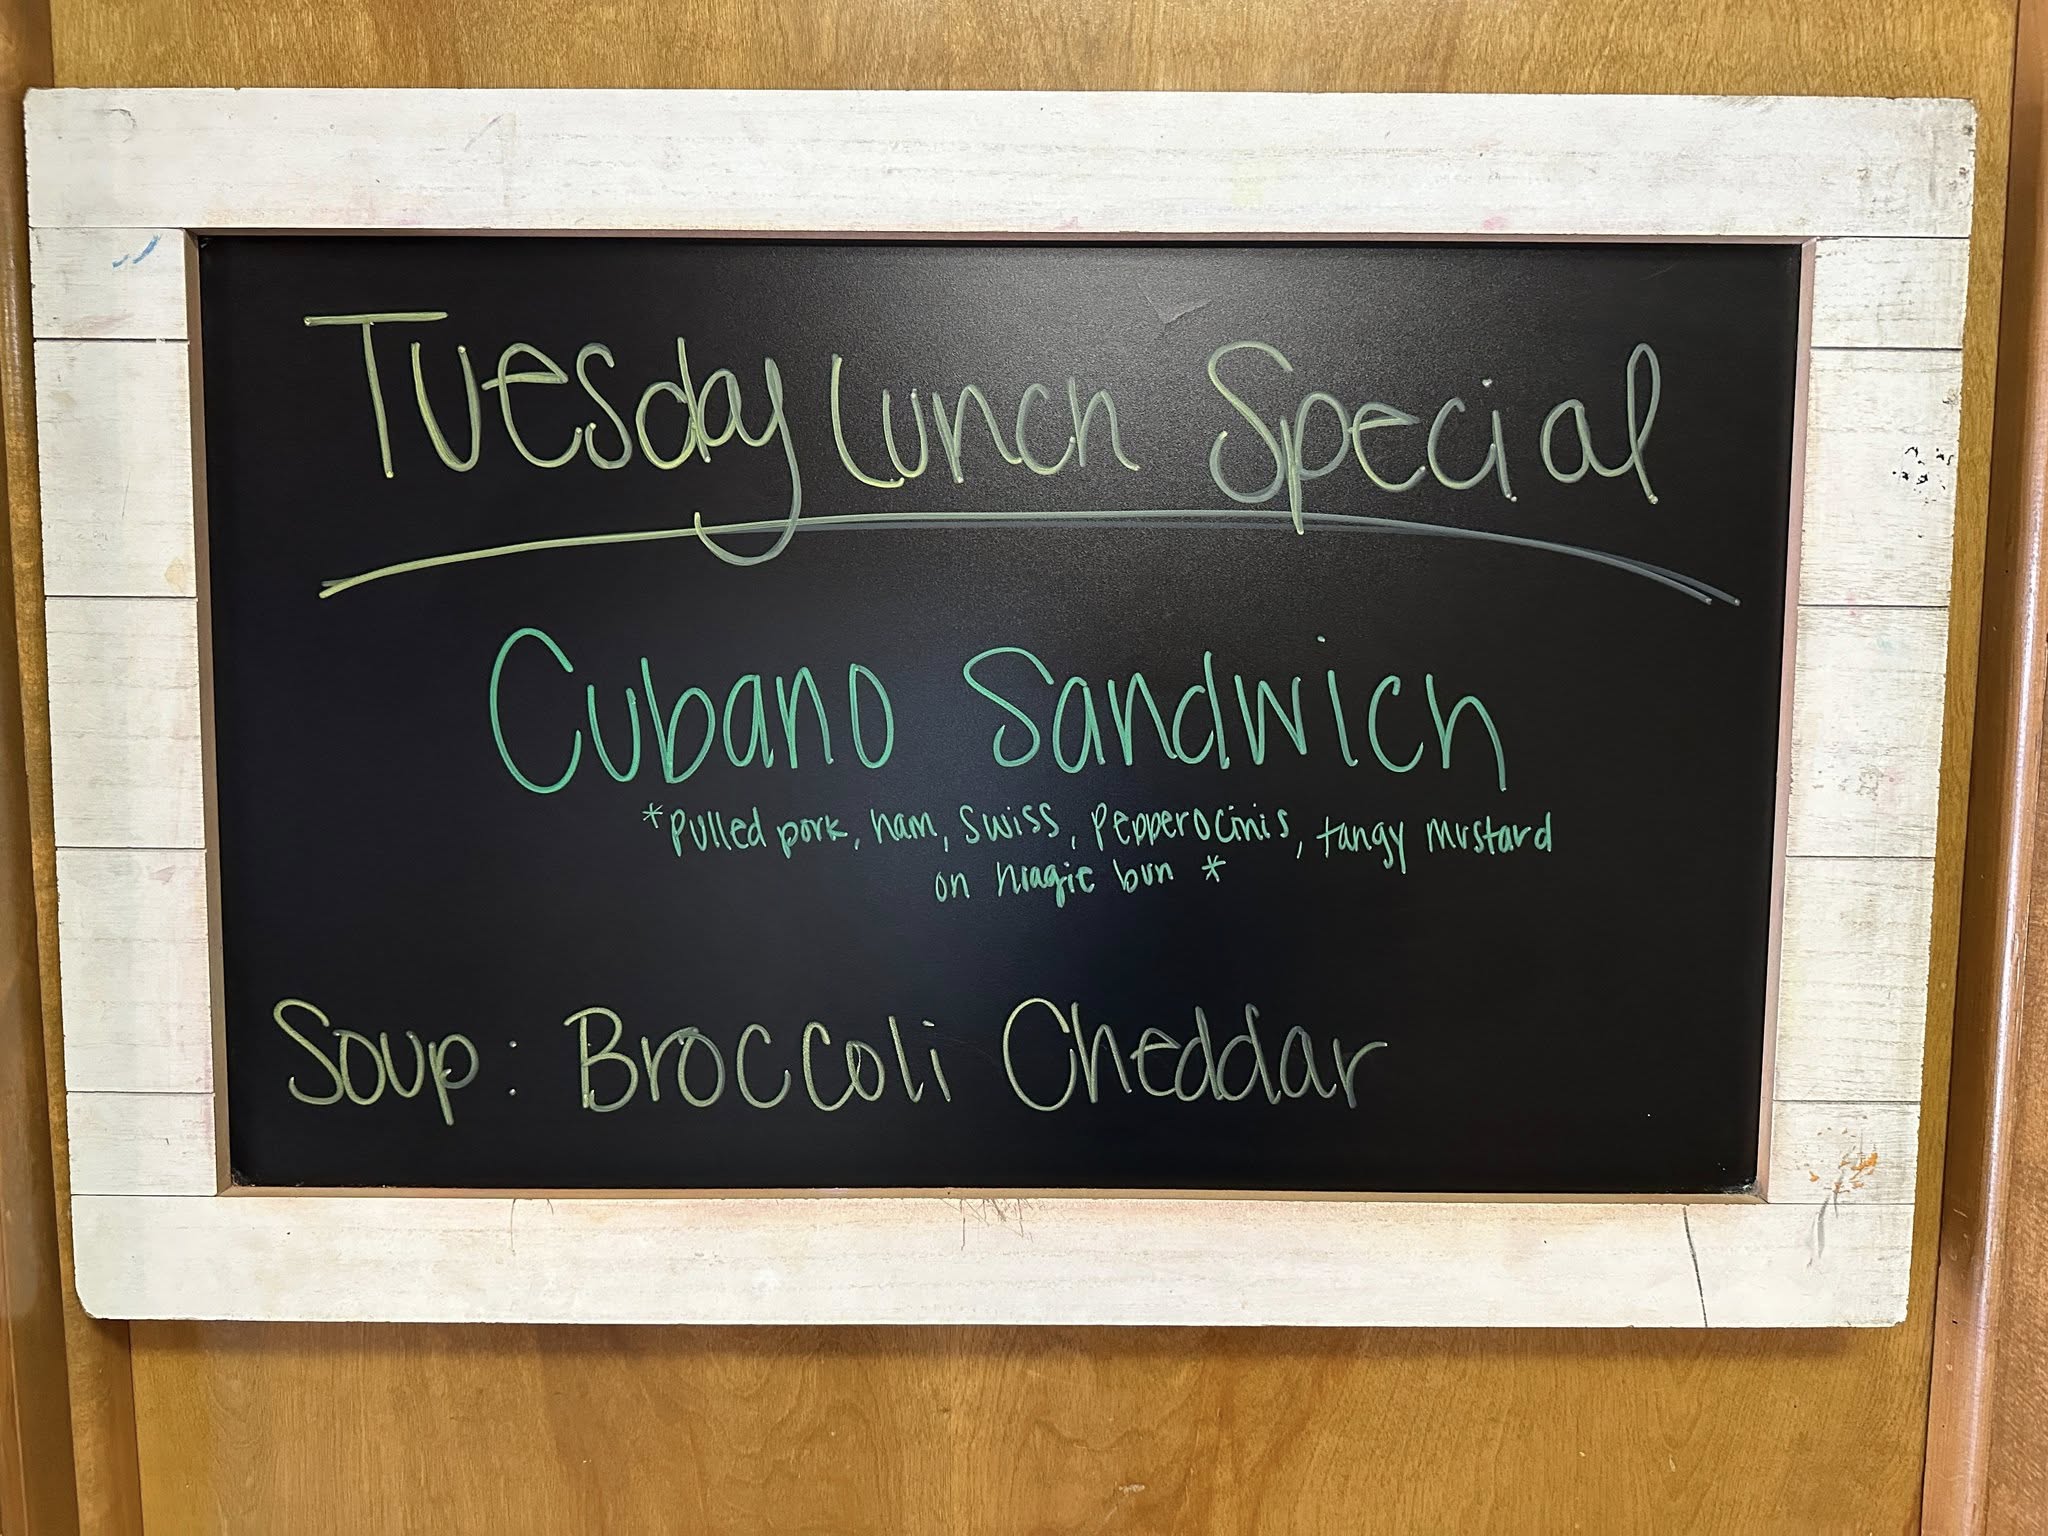 Tuesday Lunch Special
Cubano Sandwich
*Pulled pork, ham, swiss, Pepperocinis, tangy mustard
on hoagie bun *
Soup: Broccoli Cheddar